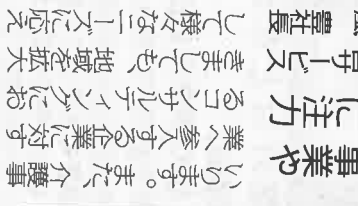 事業や
に注力
サービス
豊社長
いります。また、介護事
業へ参入する企業に対す
るコンサルティングにお
きましても、地域を拡大
して様々なニーズに応え